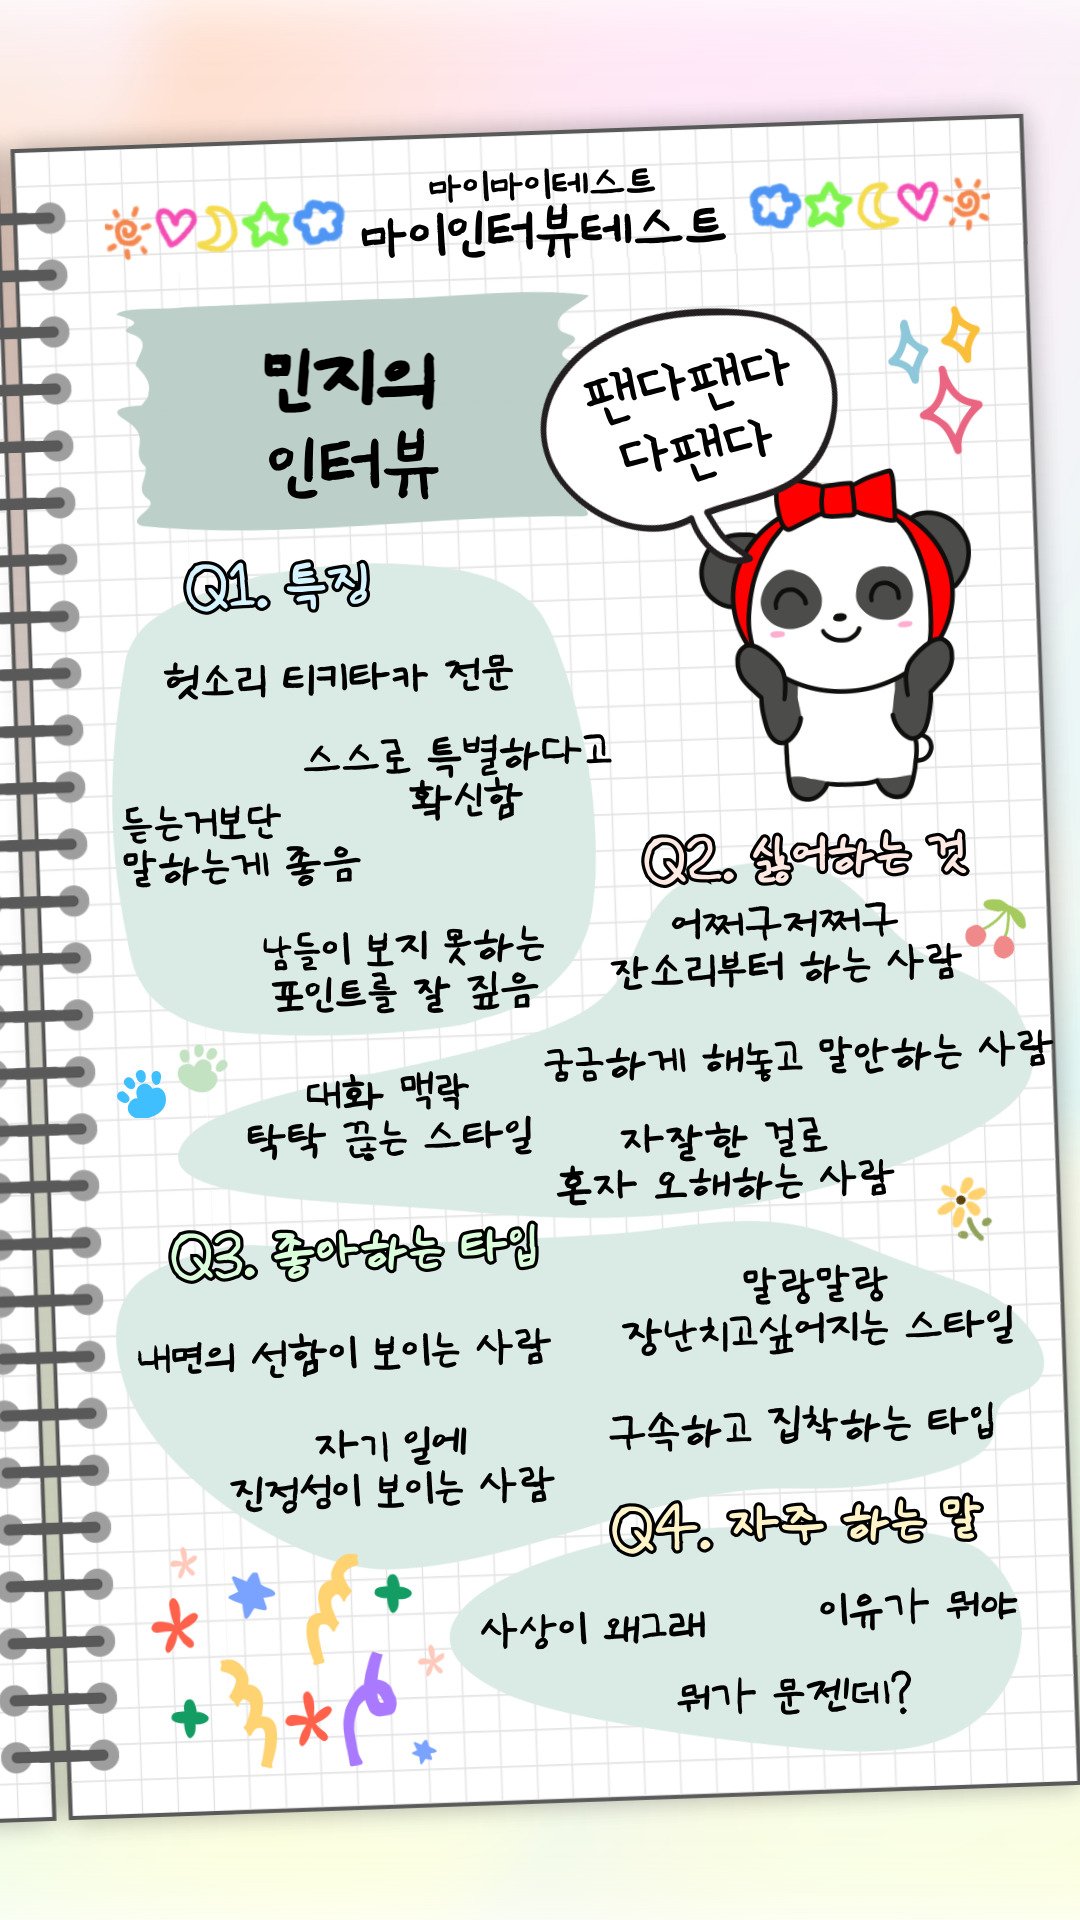 마이마이테스트
마이인터뷰테스트
민지의
인터뷰
팬다팬다
다팬다
Q1. 특징
헛소리 티키타카 전문
스스로 특별하다고
확신함
듣는거보단
말하는게 좋음
남들이 보지 못하는
포인트를 잘 짚음
Q2. 싫어하는 것
어쩌구저쩌구
잔소리부터 하는 사람
궁금하게 해놓고 말안하는 사람
대화 맥락
탁탁 끊는 스타일
자잘한 걸로
혼자 오해하는 사람
Q3. 좋아하는 타입
말랑말랑
장난치고싶어지는 스타일
내면의 선함이 보이는 사람
구속하고 집착하는 타입
자기 일에
진정성이 보이는 사람
Q4. 자주 하는 말
사상이 왜그래
이유가 뭐야
뭐가 문젠데?